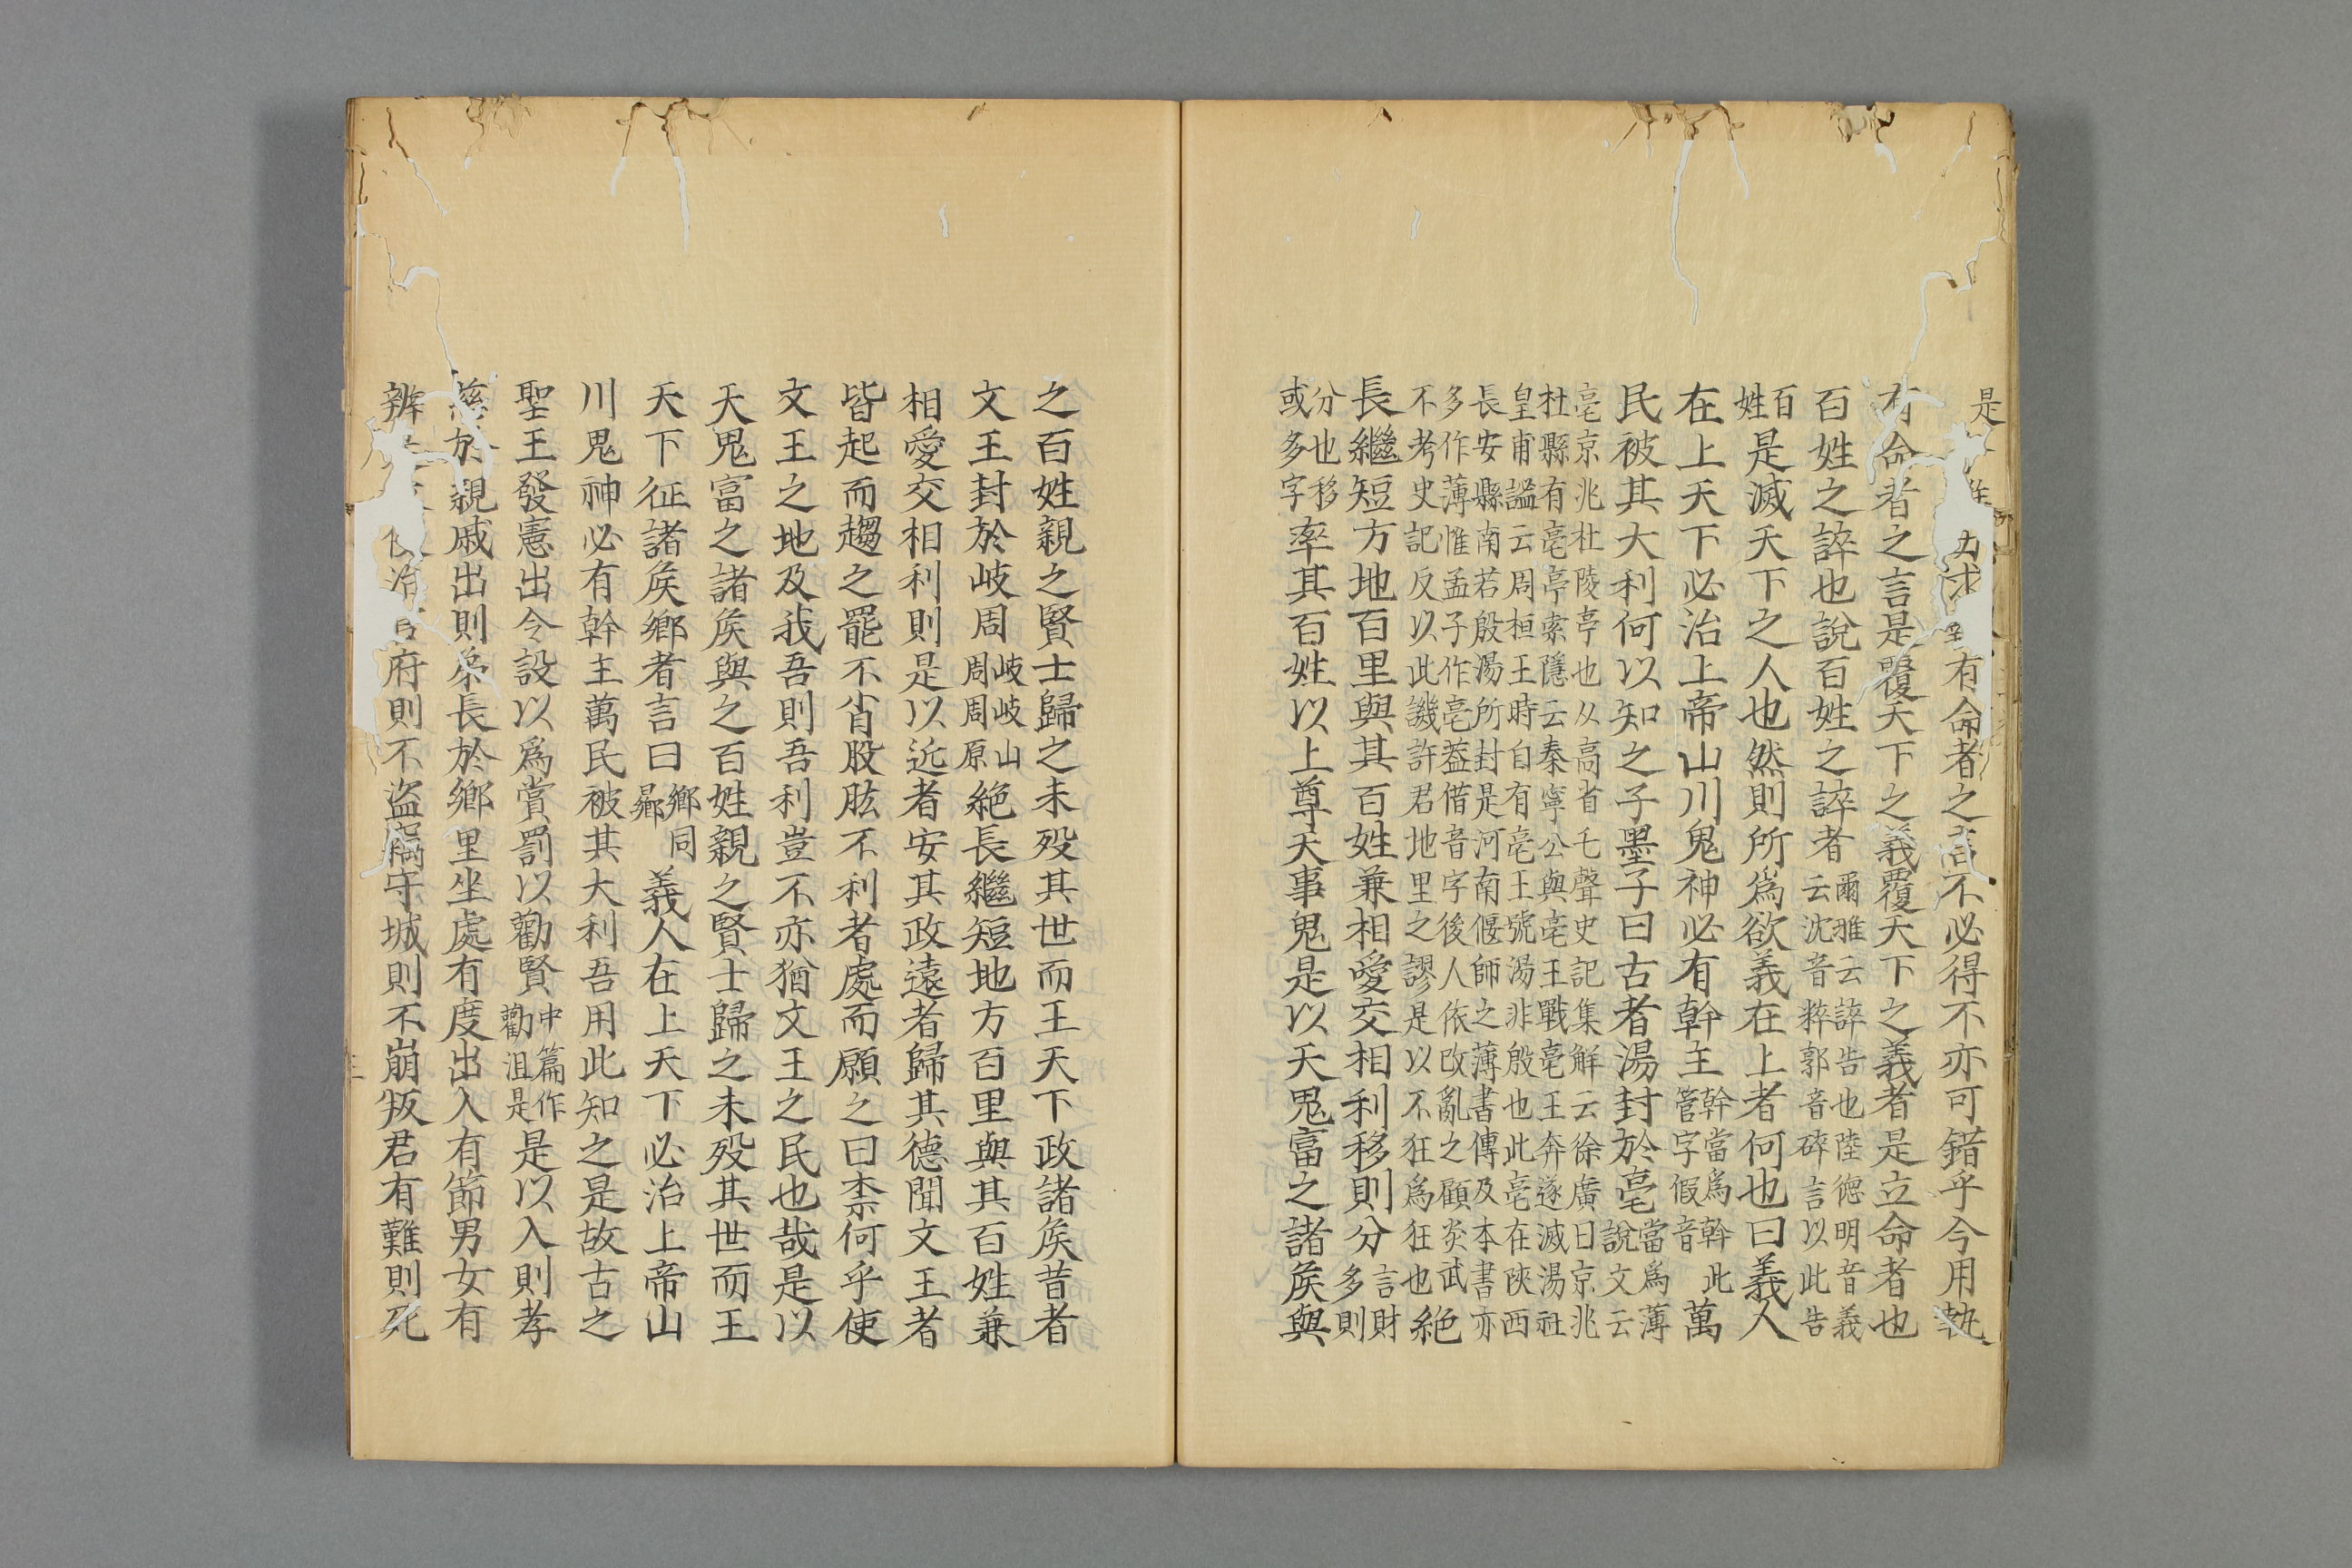 是 力求 有命者之言不必得不亦可錯乎今用執
有命者之言是覆天下之義覆天下之義者是立命者也
百姓之誶也說百姓之誶者爾雅云誶告也陸德明音義云沈音粹郭音碎言以此告
百姓是滅天下之人也然則所爲欲義在上者何也曰義人
在上天下必治上帝山川鬼神必有幹主幹當爲幹此管字假音萬
民被其大利何以知之子墨子曰古者湯封於亳當爲薄說文云
亳京兆杜陵亭也从高省乇聲史記集解云徐廣曰京兆
杜縣有亳亭索隱云秦寧公與亳王戰亳王奔遂滅湯社
皇甫謐云周桓王時自有亳王號湯非殷也此亳在陝西
長安縣南若殷湯所封是河南偃師之薄書傳及本書亦
多作薄惟孟子作亳葢借音字後人依改亂之顧炎武
不考史記反以此譏許君地里之謬是以不狂爲狂也絶
長繼短方地百里與其百姓兼相愛交相利移則分言財多則
分也移或多字率其百姓以上尊天事鬼是以天鬼富之諸矦與
之百姓親之賢士歸之未歿其世而王天下政諸矦昔者
文王封於岐周岐山周原絶長繼短地方百里與其百姓兼
相愛交相利則是以近者安其政遠者歸其德聞文王者
皆起而趨之罷不肖股肱不利者處而願之曰柰何乎使
文王之地及我吾則吾利豈不亦猶文王之民也哉是以
天鬼富之諸矦與之百姓親之賢士歸之未歿其世而王
天下征諸矦鄉者言曰鄉同曏義人在上天下必治上帝山
川鬼神必有幹主萬民被其大利吾用此知之是故古之
聖王發憲出令設以爲賞罰以勸賢中篇作勸沮是是以入則孝
慈於親戚出則弟長於鄉里坐處有度出入有節男女有
辨 治 府則不盜竊守城則不崩叛君有難則死